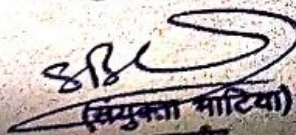 (संयुक्ता भाटिया)